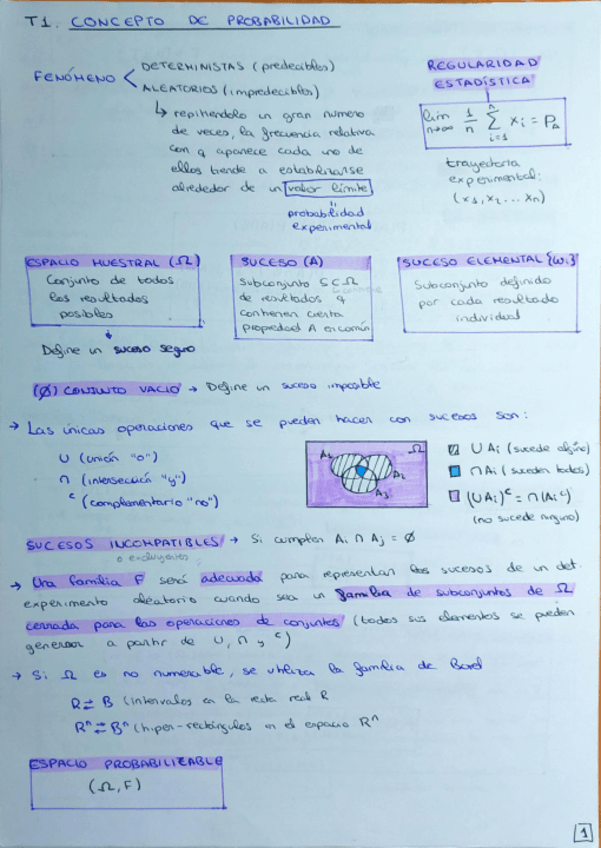 T1. CONCEPTO DE PROBABILIDAD
FENÓMENO < DETERMINISTAS (predecibles)
ALEATORIOS (impredecibles)
↳ repitiendolo un gran numero
de veces, la frecuencia relativa
con q aparece cada uno de
ellos tiende a estabilizarse
alrededor de un valor límite
probabilidad
experimental
REGULARIDAD
ESTADÍSTICA
lim n→∞ 1/n Σ i=1 n xi = PA
trayectoria
experimental:
(x1, x2 ... xn)
ESPACIO MUESTRAL (Ω)
Conjunto de todos
los resultados
posibles
Define un suceso seguro
SUCESO (A)
Subconjunto S⊂Ω
de resultados q
contienen cierta
propiedad A en común
SUCESO ELEMENTAL {ωi}
Subconjunto definido
por cada resultado
individual
(∅) CONJUNTO VACIO → Define un suceso imposible
→ Las únicas operaciones que se pueden hacer con sucesos son:
∪ (unión "o")
∩ (intersección "y")
c (complementario "no")
A1 A2 A3 Ω
∪Ai (sucede alguno)
∩Ai (suceden todos)
(∪Ai)c = ∩(Aic)
(no sucede ninguno)
SUCESOS INCOMPATIBLES → Si cumplen Ai ∩ Aj = ∅
o excluyentes
→ Una familia F será adecuada para representar los sucesos de un det.
experimento aleatorio cuando sea un familia de subconjuntos de Ω
cerrada para las operaciones de conjuntos (todos sus elementos se pueden
generar a partir de ∪, ∩ y c)
→ Si Ω es no numerable, se utiliza la familia de Borel
R ⇄ B (intervalos en la recta real R
Rn ⇄ Bn (hiper-rectángulos en el espacio Rn
ESPACIO PROBABILIZABLE
(Ω, F)
1